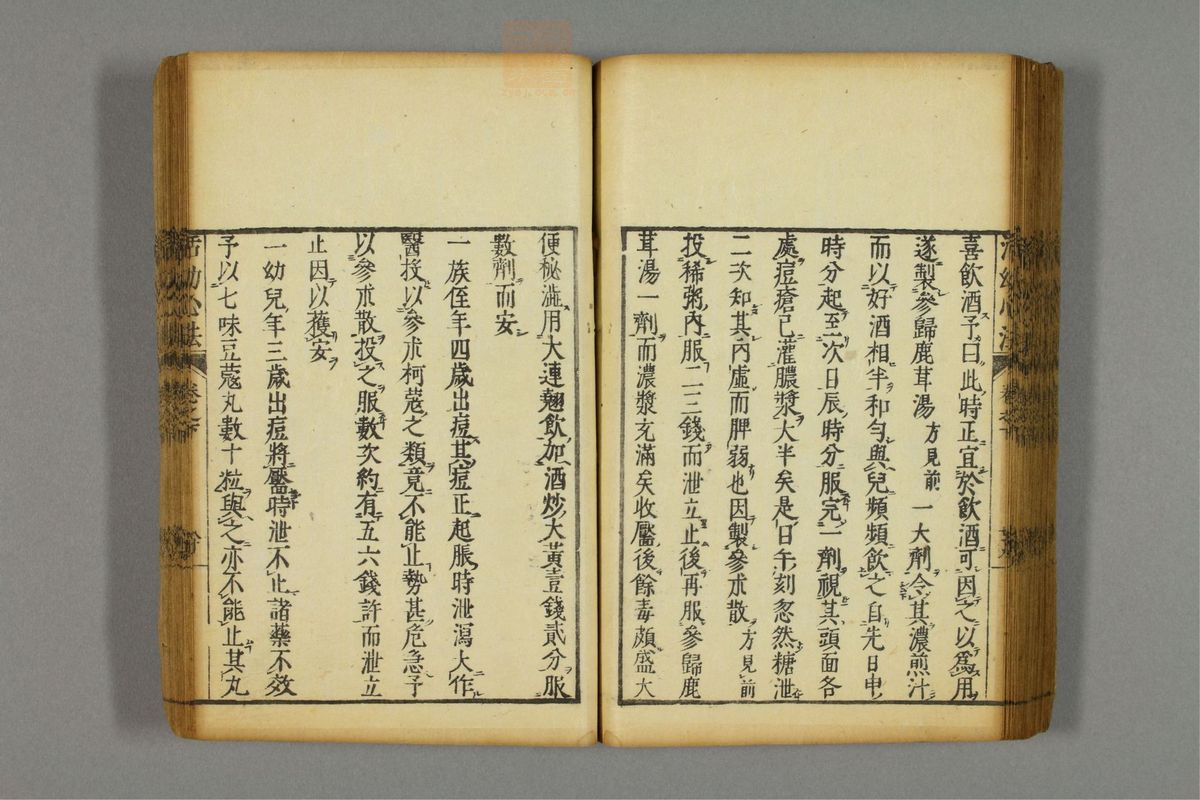 喜飲酒予曰此時正宜於飲酒可因之以為用
遂製參歸鹿茸湯方見前一大劑令其濃煎汁
而以好酒相半和勻與兒頻頻飲之自先日申
時分起至次日辰時分服完一劑視其頭面各
處痘瘡已灌膿漿大半矣是日午刻忽然糖泄
二次知其內虛而脾弱也因製參朮散方見前
投稀粥內服二三錢而泄立止後再服參歸鹿
茸湯一劑而濃漿充滿矣收靨後餘毒頗盛大
便秘澁用大連翹飲加酒炒大黃壹錢貳分服
數劑而安
一族侄年四歲出痘其痘正起脹時泄瀉大作
醫投以參朮柯蔻之類竟不能止勢甚危急予
以參朮散投之服數次約有五六錢許而泄立
止因以獲安
一幼兒年三歲出痘將靨時泄不止諸藥不效
予以七味豆蔻丸數十粒與之亦不能止其丸
活幼心法
卷之下